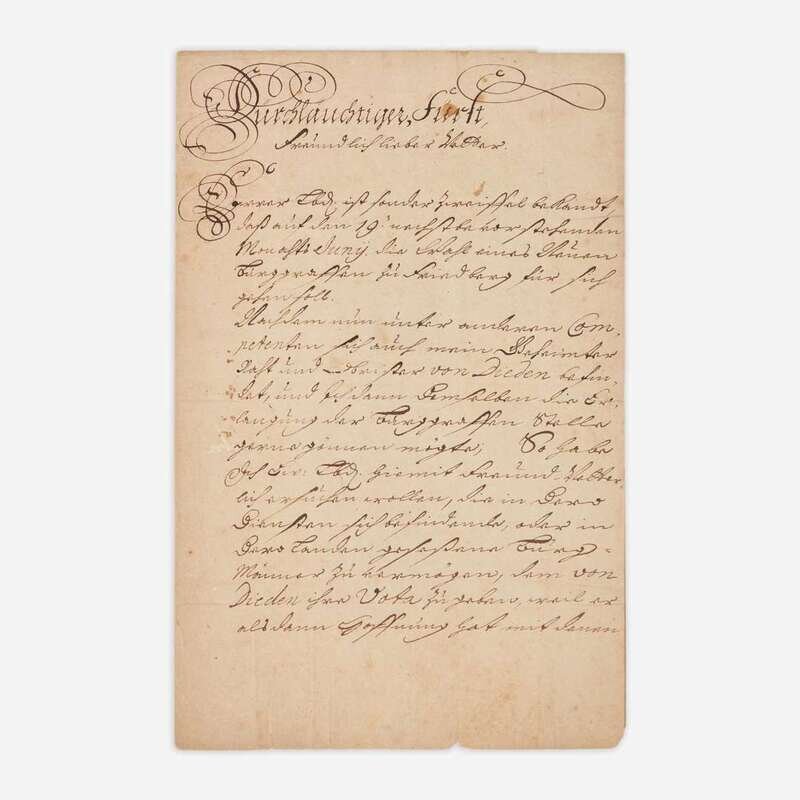 Durchlauchtiger Fürst,
Freundlichlieber Vetter.
Ewer Lbd. ist sonder Zweiffel bekandt
daß auf den 19 nechstbevorstehenden
Monahts Junij die Wahl eines Neuen
Burggraffen zu Friedberg für sich
gehen soll.
Nachdem nun unter anderen Com-
petenten sich auch mein Geheimter
Raht und Obrister von Dieden befin-
det, und Ich dann demselben die Er-
langung der Burggraffen Stelle
gerne gönnen mögte; So habe
Ich Ew: Lbd. hiemit Freund-Vetter-
lich ersuchen wollen, die in Dero
Diensten sich befindende, oder in
Dero Landen geseßene Burg-
Männer zu vermögen, dem von
Dieden ihre Vota zu geben, weil er
alsdann Hoffnung hat mit denen